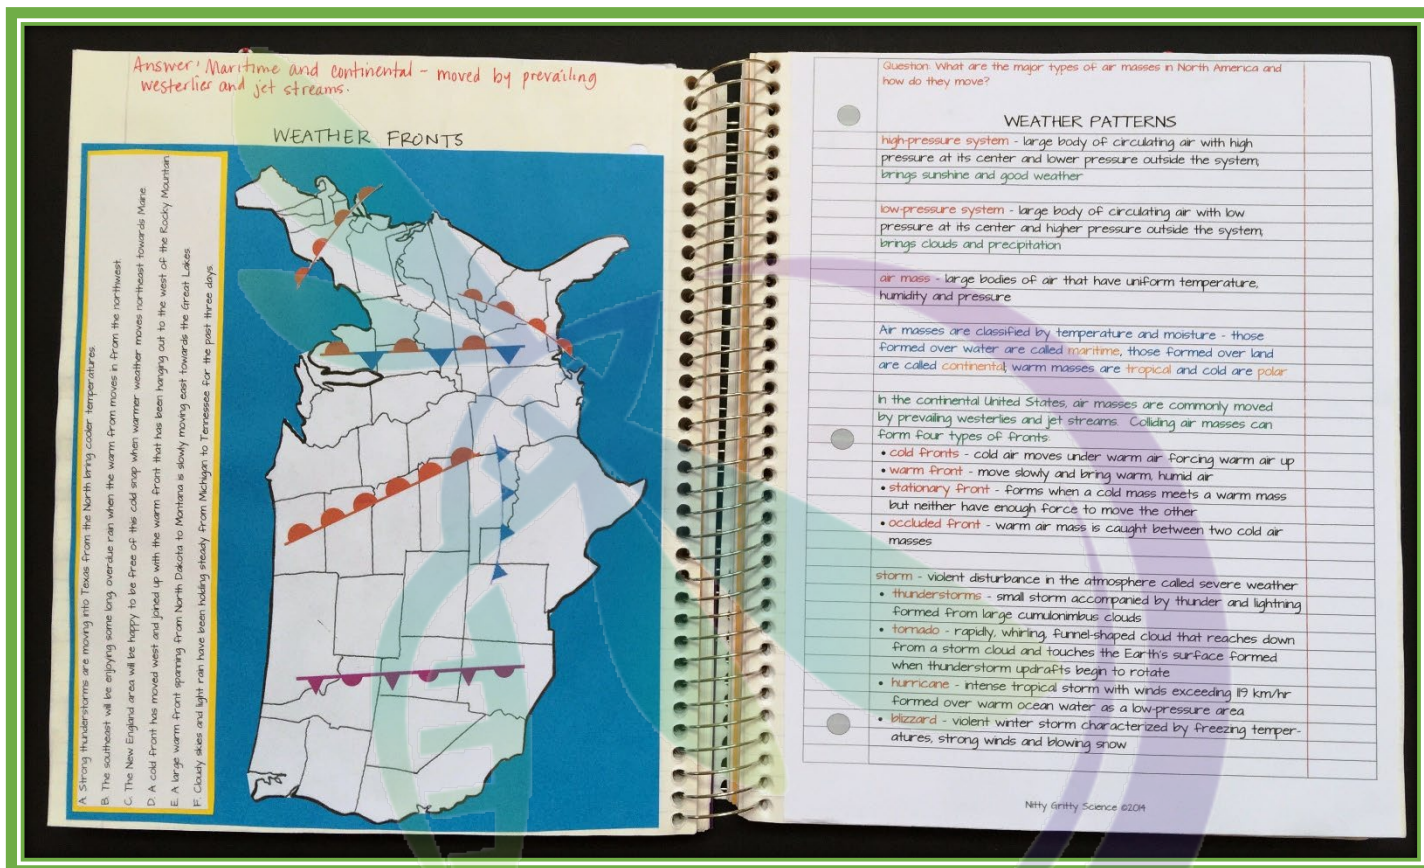 Answer: Maritime and continental - moved by prevailing
westerlies and jet streams.
WEATHER FRONTS
A. Strong thunderstorms are moving into Texas from the North bring cooler temperatures.
B. The southeast will be enjoying some long overdue rain when the warm from moves in from the northwest.
C. The New England area will be happy to be free of this cold snap when warmer weather moves northeast towards Maine
D. A cold front has moved west and joined up with the warm front that has been hanging out to the west of the Rocky Mountain.
E. A large warm front spanning from North Dakota to Montana is slowly moving east towards the Great Lakes
F. Cloudy skies and light rain have been holding steady from Michigan to Tennessee for the past three days.
Question: What are the major types of air masses in North America and
how do they move?
WEATHER PATTERNS
high-pressure system - large body of circulating air with high
pressure at its center and lower pressure outside the system;
brings sunshine and good weather
low-pressure system - large body of circulating air with low
pressure at its center and higher pressure outside the system;
brings clouds and precipitation
air mass - large bodies of air that have uniform temperature,
humidity and pressure
Air masses are classified by temperature and moisture - those
formed over water are called maritime, those formed over land
are called continental; warm masses are tropical and cold are polar
In the continental United States, air masses are commonly moved
by prevailing westerlies and jet streams. Colliding air masses can
form four types of fronts:
• cold fronts - cold air moves under warm air forcing warm air up
• warm front - move slowly and bring warm, humid air
• stationary front - forms when a cold mass meets a warm mass
but neither have enough force to move the other
• occluded front - warm air mass is caught between two cold air
masses
storm - violent disturbance in the atmosphere called severe weather
• thunderstorms - small storm accompanied by thunder and lightning
formed from large cumulonimbus clouds
• tornado - rapidly, whirling, funnel-shaped cloud that reaches down
from a storm cloud and touches the Earth's surface formed
when thunderstorm updrafts begin to rotate
• hurricane - intense tropical storm with winds exceeding 119 km/hr
formed over warm ocean water as a low-pressure area
• blizzard - violent winter storm characterized by freezing temper-
atures, strong winds and blowing snow
Nitty Gritty Science ©2014